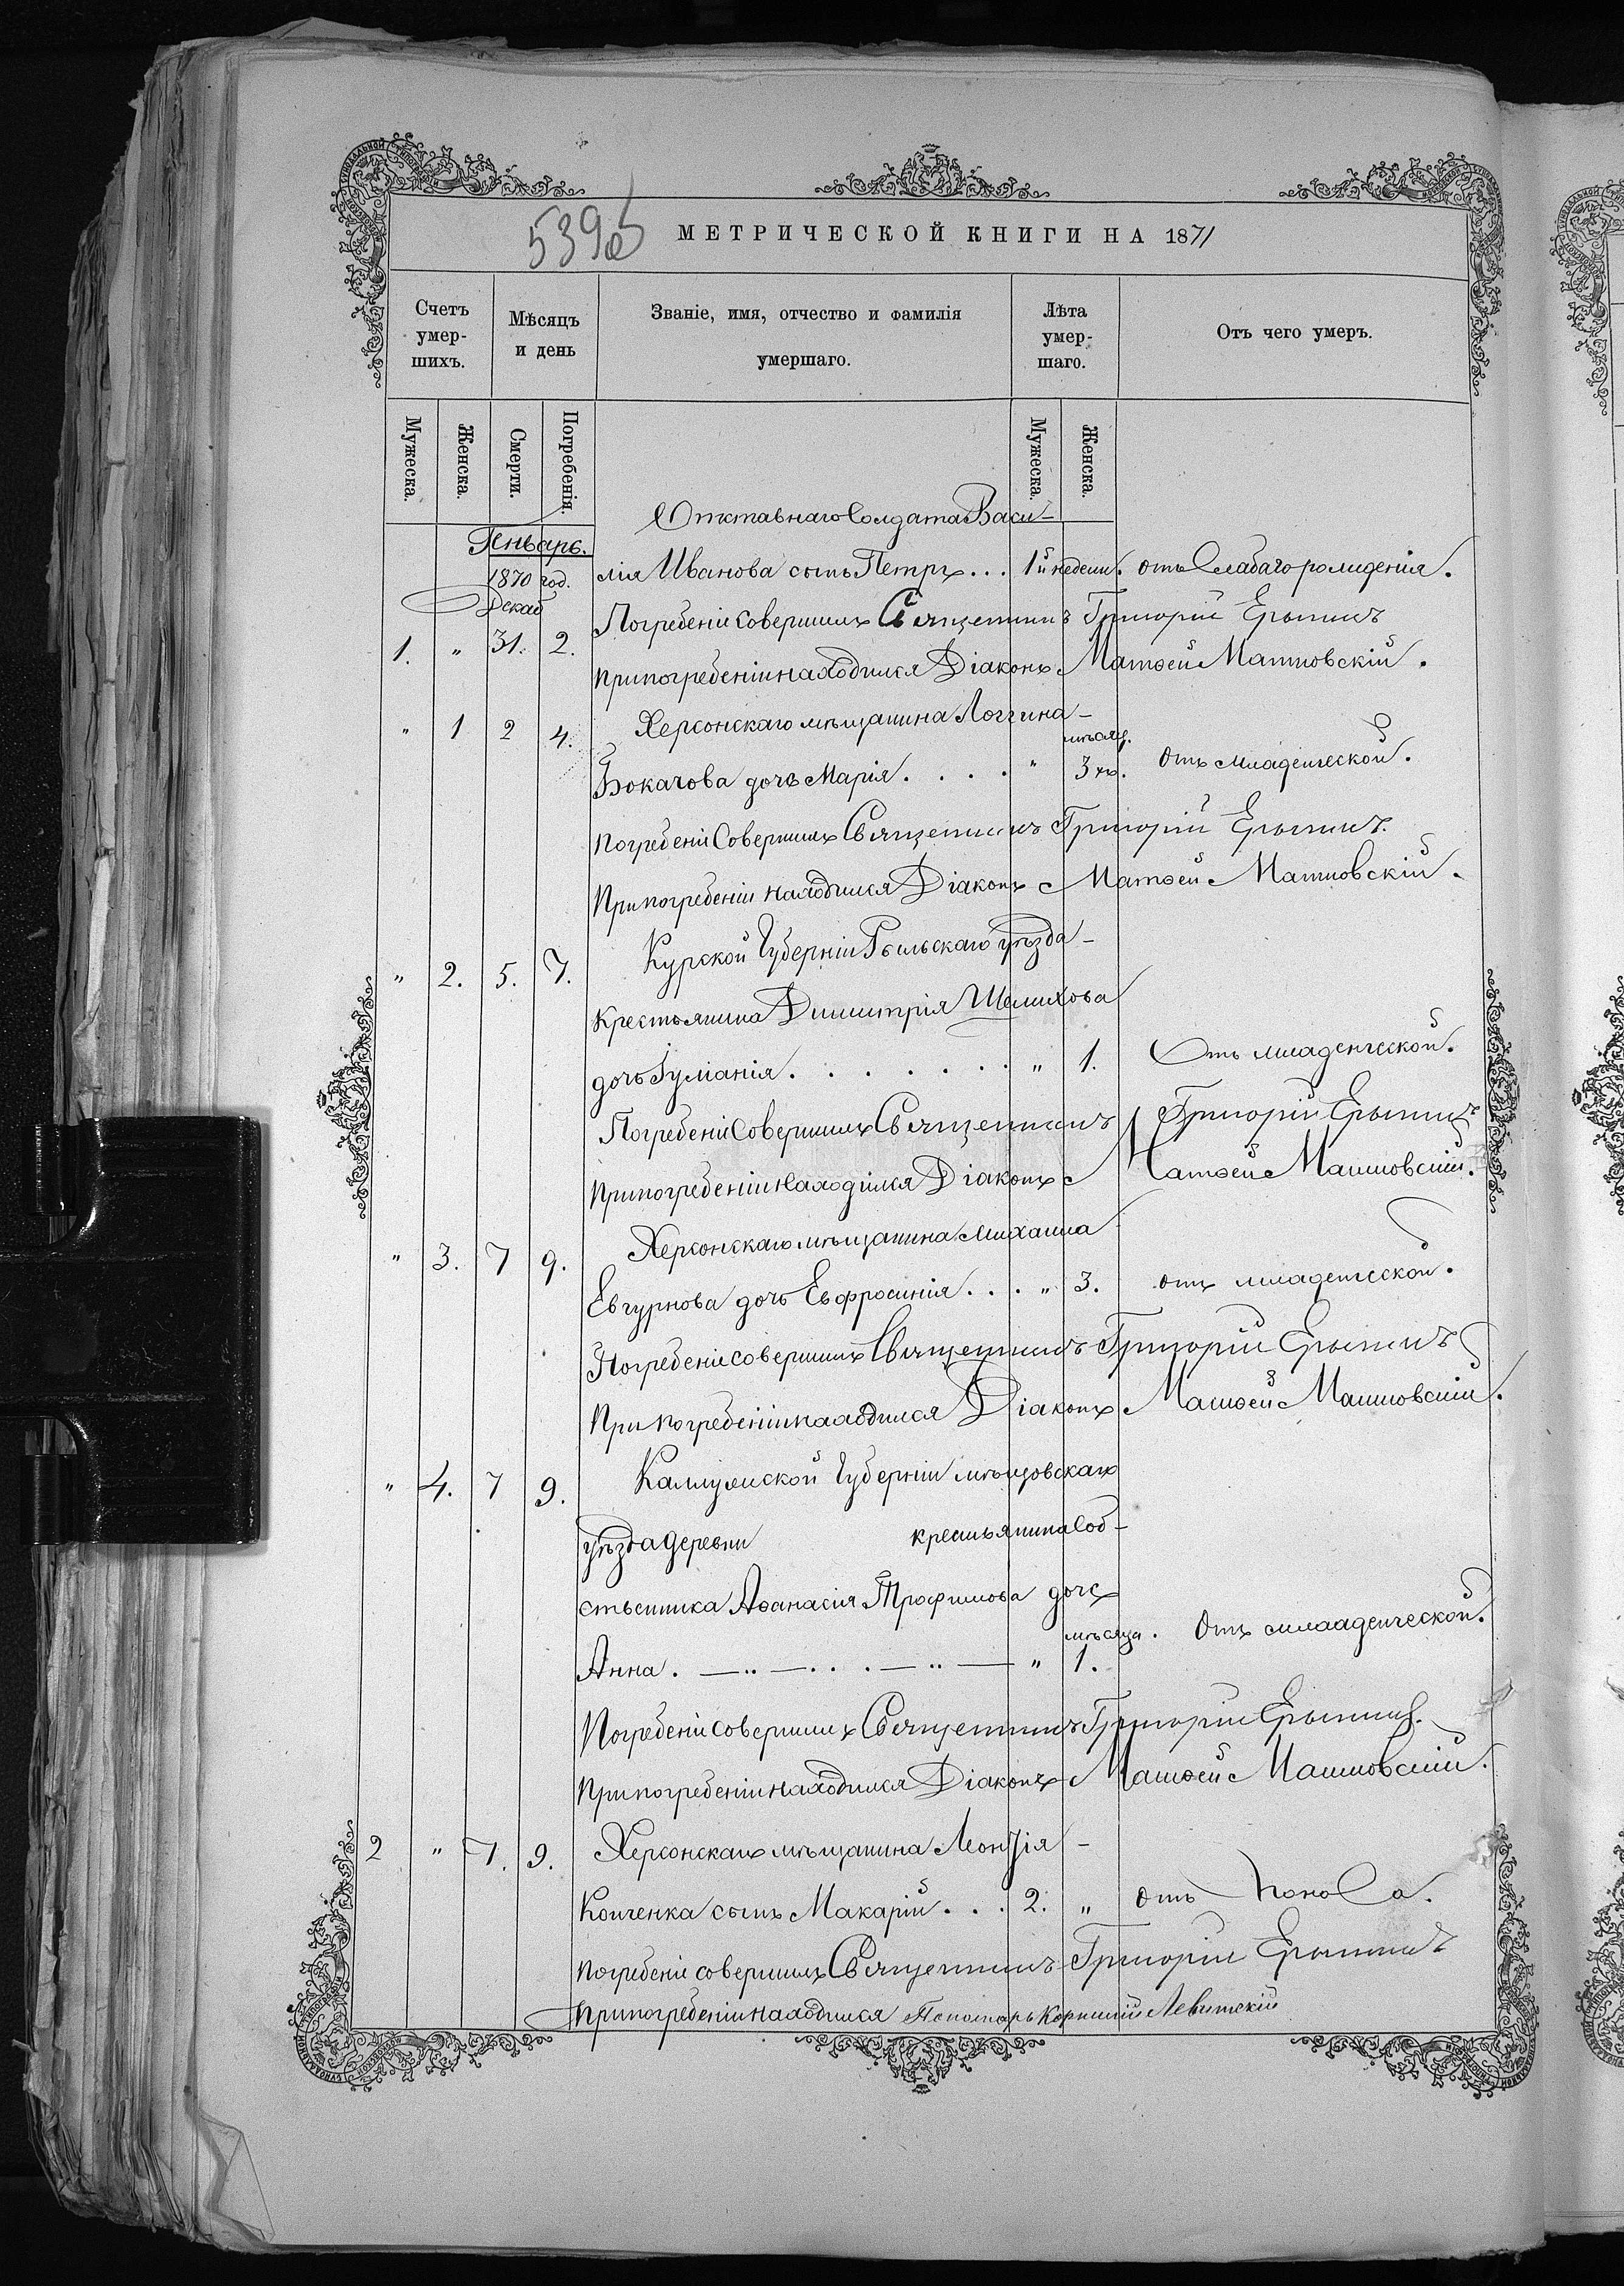 539об
МЕТРИЧЕСКОЙ КНИГИ НА 1871
Счетъ умер-шихъ.
Мѣсяцъ и день
Званіе, имя, отчество и фамилія умершаго.
Лѣта умер-шаго.
Отъ чего умеръ.
Мужеска. Женска. Смерти. Погребенія. Мужеска. Женска.
Генварь.
Отставнаго Солдата Васи-
1870 год. лія Иванова сынъ Петръ... 1й недели. отъ Слабаго рожденія.
Декаб
Погребеніе Совершилъ Священникъ Григорій
1. " 31. 2. При погребеніи находился Діаконъ Матѳей
" 1 2 4. Херсонскаго мѣщанина Логгина-
мѣсяц.
Бокачова дочь Марія.... " 3хъ. Отъ младенческой.
Погребеніе Совершилъ Священникъ Григорій
При погребеніи находился Діаконъ Матѳей
" 2. 5. 7. Курской Губерніи Рыльскаго уѣзда-
Крестьянина Димитрія Шелихова
дочь Іуліанія....... " 1. Отъ младенческой.
Погребеніе Совершилъ Священникъ Григорій
При погребеніи находился Діаконъ Матѳей
" 3. 7 9. Херсонскаго мѣщанина Михаила
дочь Евфросинія... " 3. отъ младенческой.
Погребеніе совершилъ Священникъ Григорій
При погребеніи находился Діаконъ Матѳей
" 4. 7 9. Губерніи мѣщовскаго
уѣзда деревни крестьянина Соб-
ственника Аѳанасія Трофимова дочь
мѣсяца. Отъ младенческой.
Анна. " 1.
Погребеніе совершилъ Священникъ Григорій
При погребеніи находился Діаконъ Матѳей
2 " 7. 9. Херсонскаго мѣщанина Леонтія-
Копченка сынъ Макарій... 2. " отъ Поноса.
Погребеніе совершилъ Священникъ Григорій
При погребеніи находился Пономарь Корнилій Левитскій